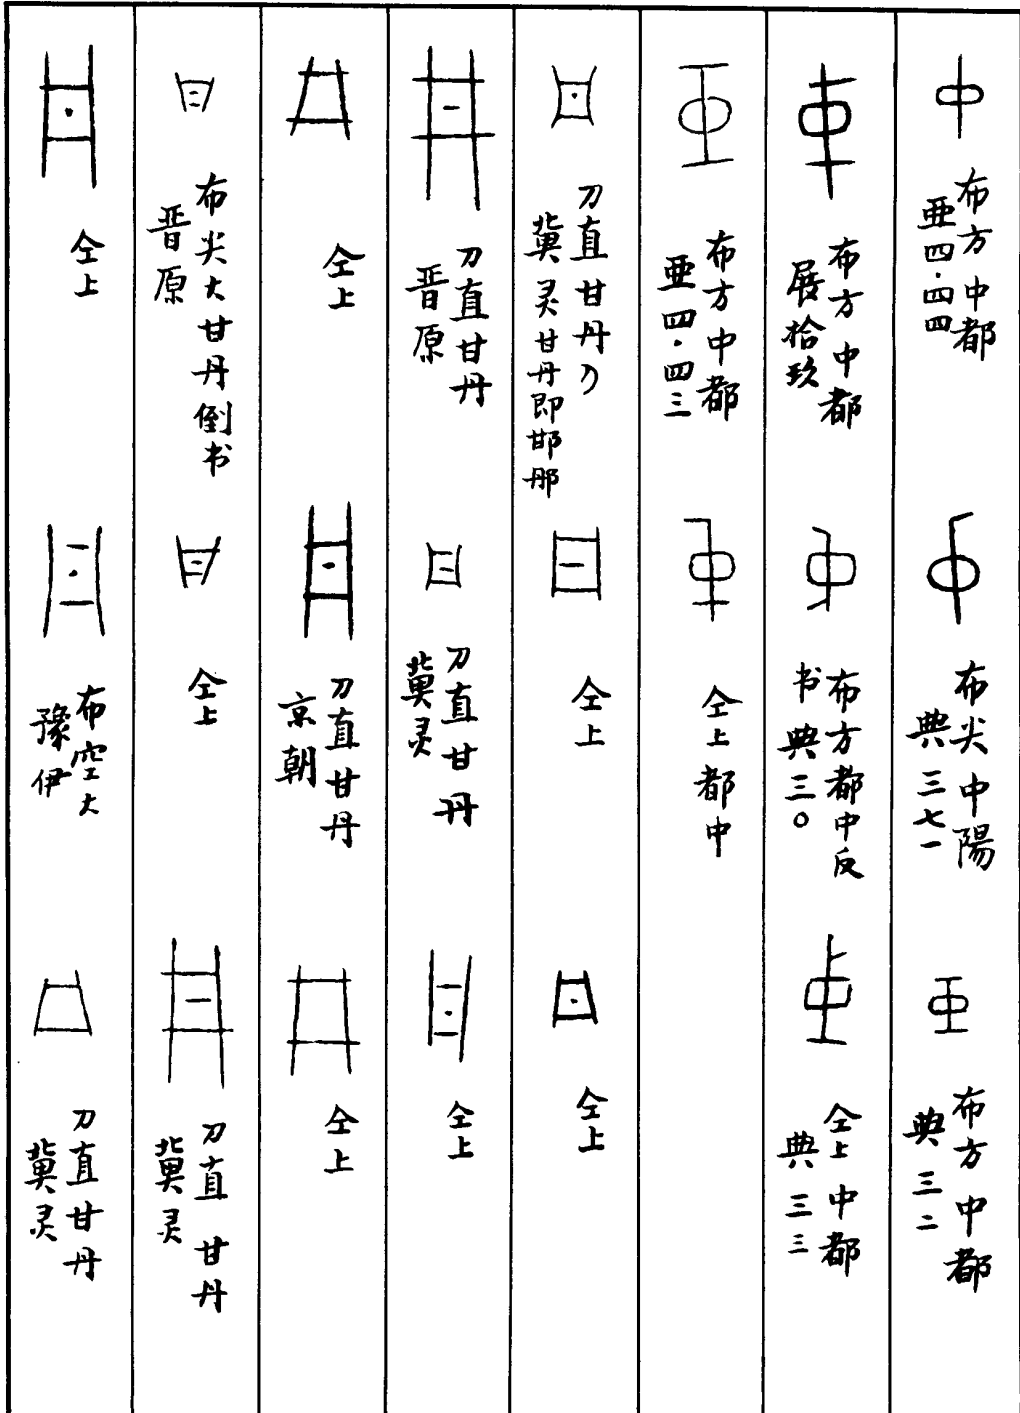 中
布方中都
亜四·四四
中
布尖中陽
典三七一
中
布方中都
典三二
中
布方中都
展拾玖
中
布方都中反
书典三〇
中
仝上中都
典三三
中
布方中都
亜四·四三
中
仝上都中
甘
刀直甘丹刀
冀灵甘丹即邯郸
甘
仝上
甘
仝上
甘
刀直甘丹
晋原
甘
刀直甘丹
冀灵
甘
仝上
甘
仝上
甘
刀直甘丹
京朝
甘
仝上
甘
布尖大甘丹倒书
晋原
甘
仝上
甘
刀直甘丹
冀灵
甘
仝上
甘
布空大
豫伊
甘
刀直甘丹
冀灵